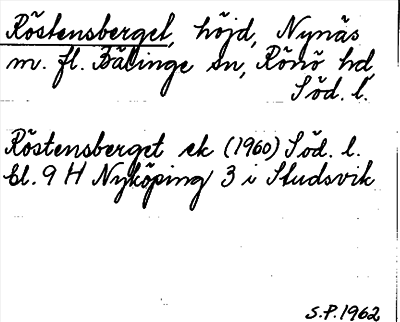 Röstensberget, höjd, Nynäs
m. fl. Bälinge sn, Rönö hd,
Söd. l.
Röstensberget ek (1960) Söd. l.
bl. 9 H Nyköping 3 i Studsvik
S.P. 1962